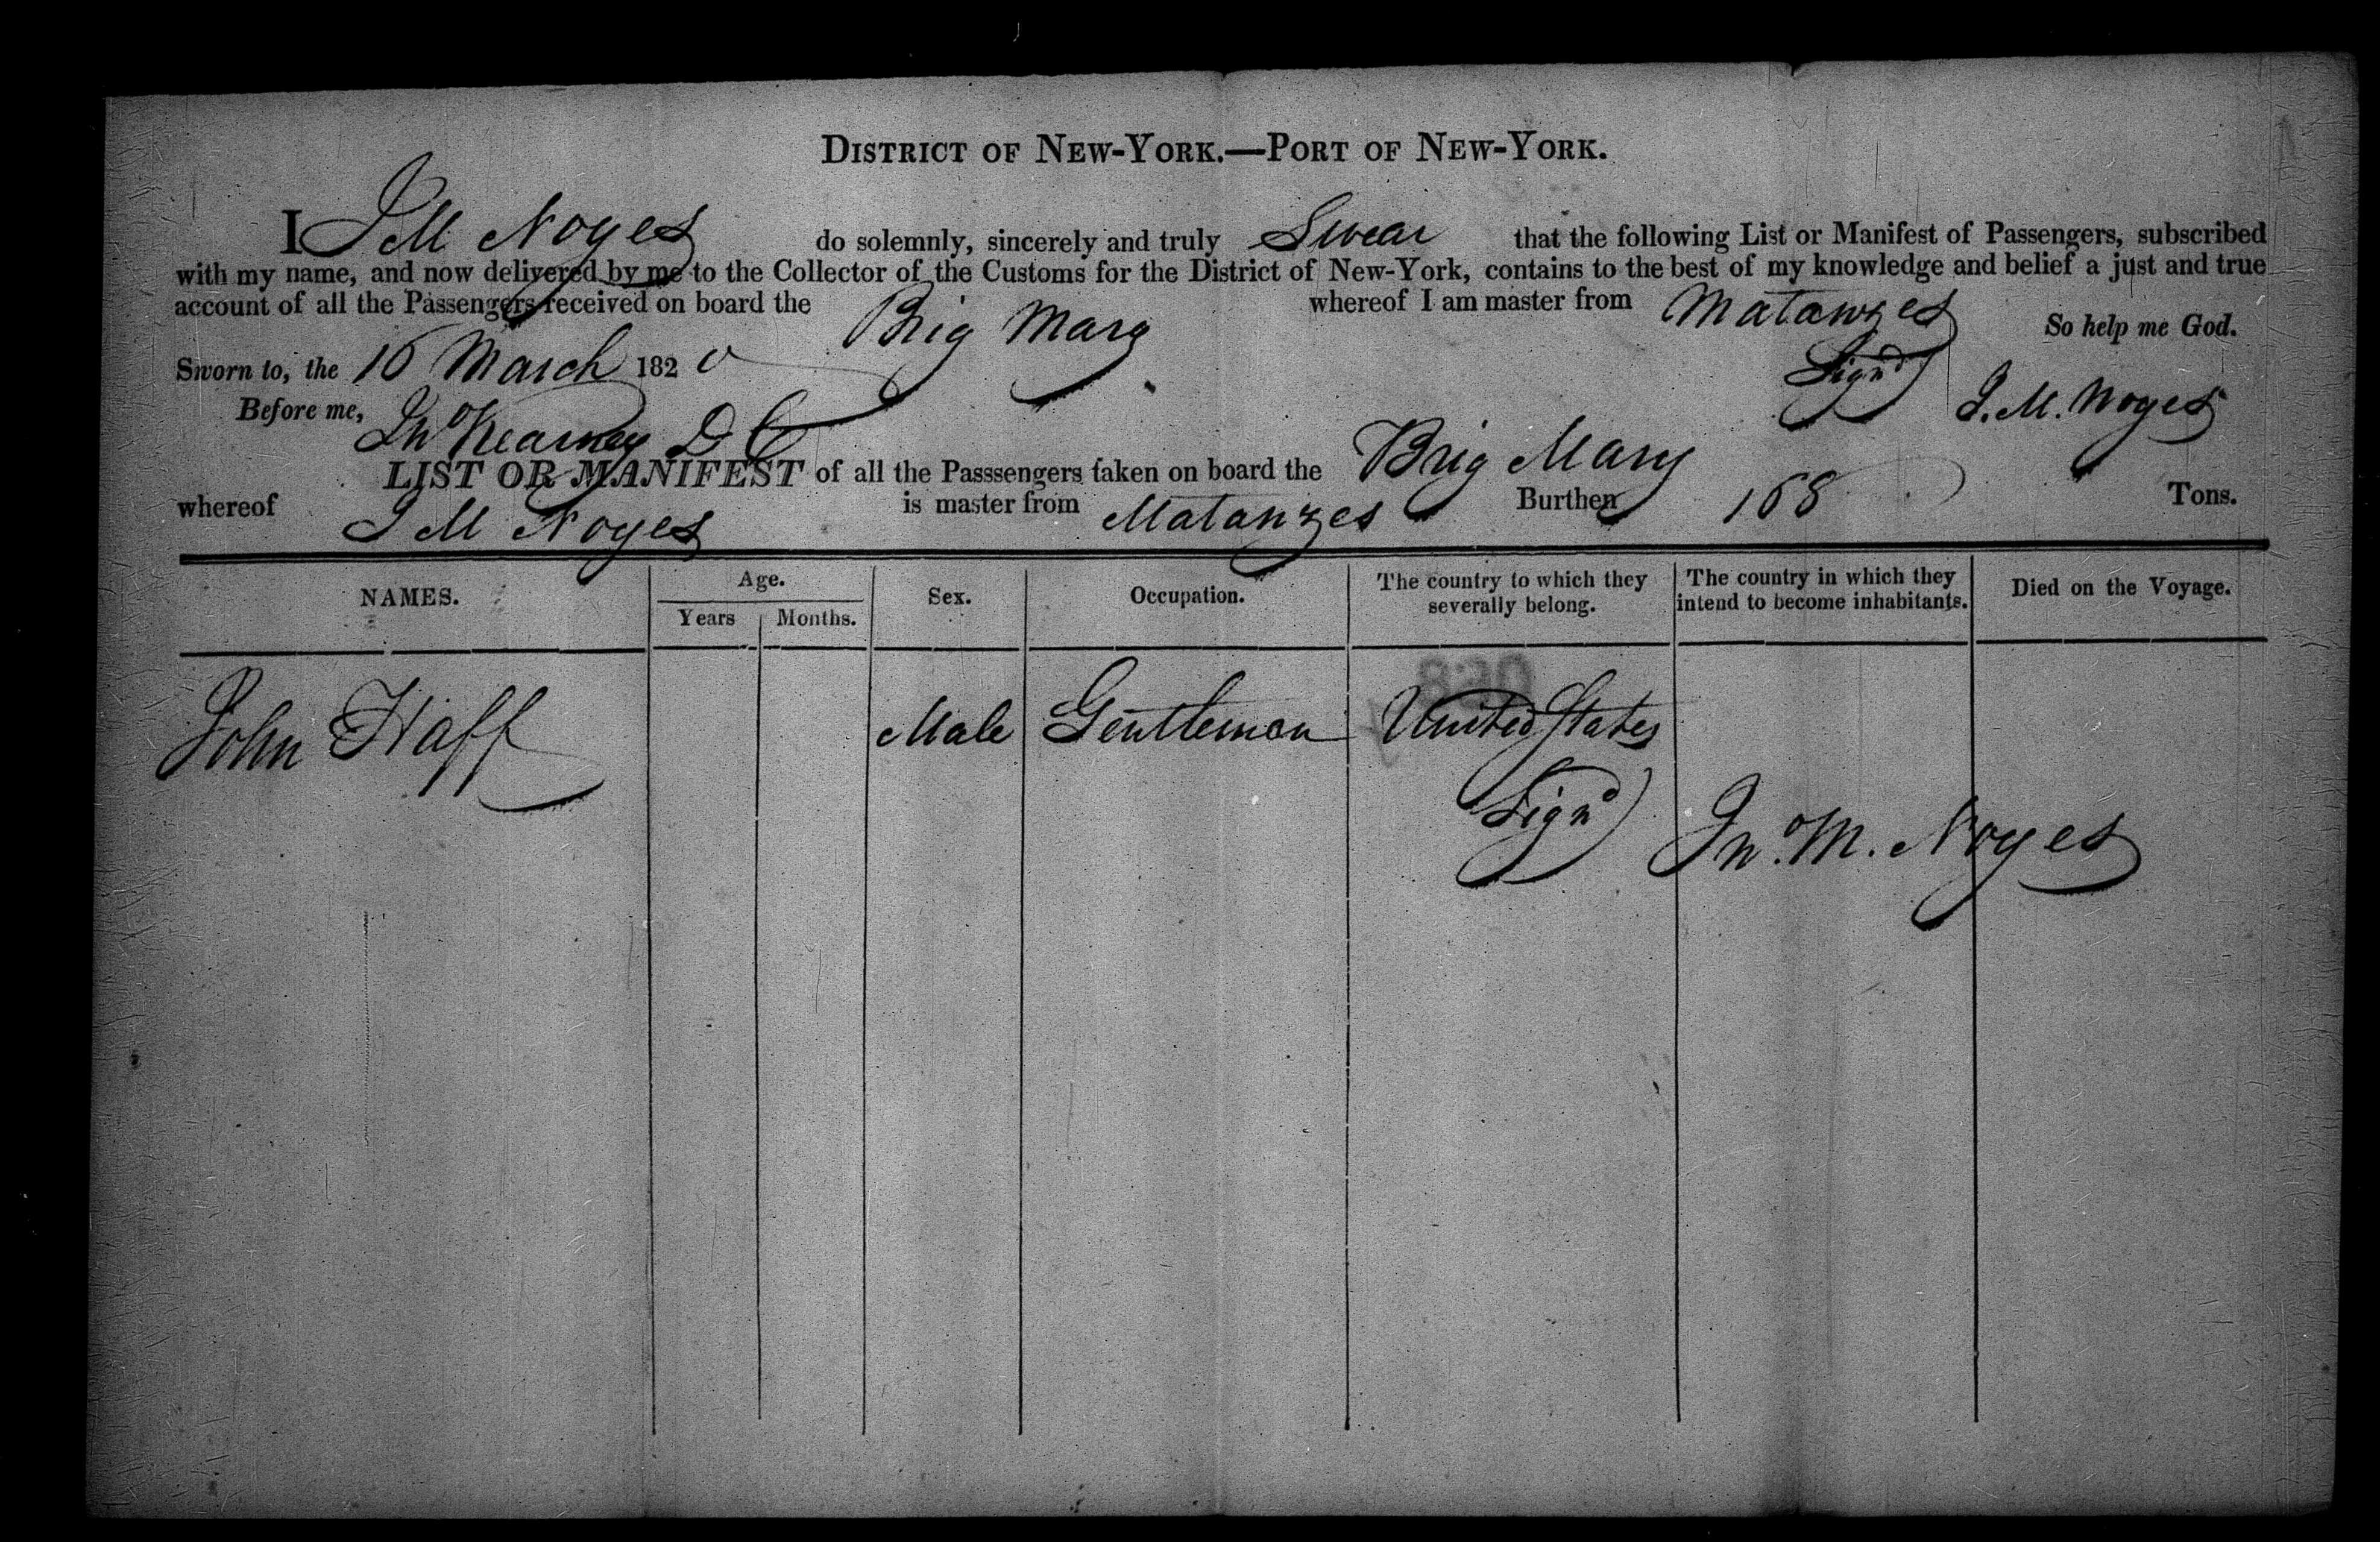 DISTRICT OF NEW-YORK.—PORT OF NEW-YORK.
I J M Noyes do solemnly, sincerely and truly Swear that the following List or Manifest of Passengers, subscribed
with my name, and now delivered by me to the Collector of the Customs for the District of New-York, contains to the best of my knowledge and belief a just and true
account of all the Passengers received on board the Brig Mary whereof I am master from Matanzes
So help me God.
Sworn to, the 16 March 1820 Signd J. M. Noyes
Before me, Jno Kearney D C
LIST OR MANIFEST of all the Passsengers taken on board the Brig Mary
whereof J M Noyes is master from Matanzes Burthen 168 Tons.
NAMES. Age. Sex. Occupation. The country to which they severally belong. The country in which they intend to become inhabitants. Died on the Voyage.
Years Months.
John Haff Male Gentleman United States
Signd Jno. M. Noyes